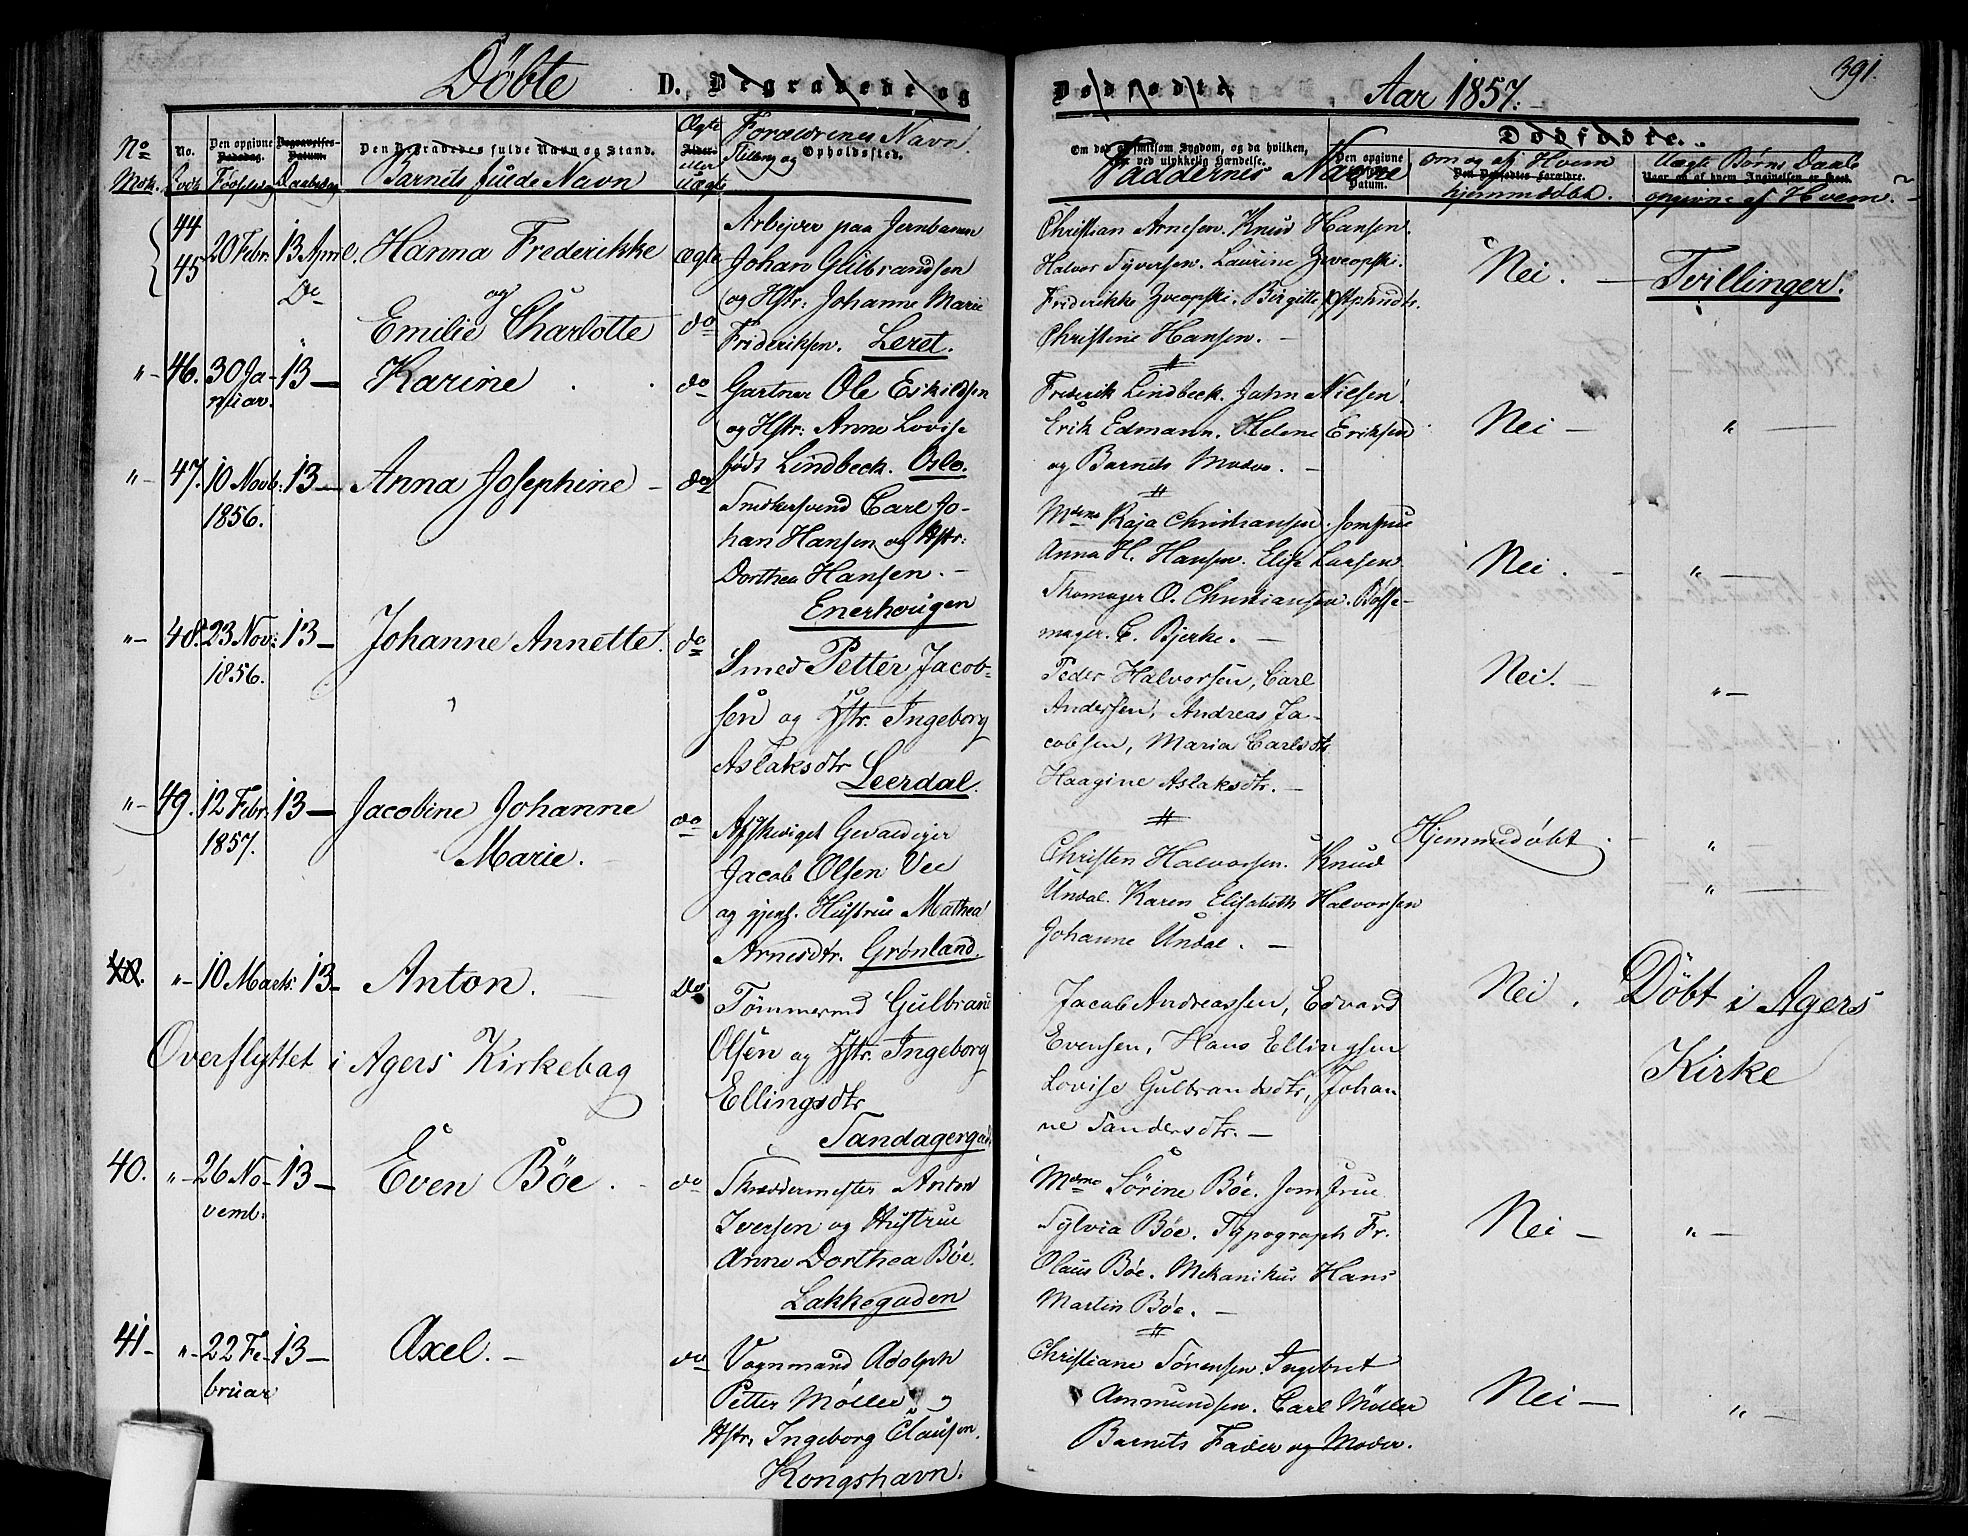 Døbte D. Begravede og Dødfødte. Aar 1857. 391.
No. Mdk. No. Qvik. Den opgivne Dødsdag. Fødselsdag Begravelses-Datum. Daabsdag Den Begravedes fulde Navn og Stand. Barnets fulde Navn Ægte eller Uægte Forældrenes Navn Stilling og Opholdssted.
Om død af smitsom Sygdom, og da hvilken, eller ved ulykkelig Hændelse. Faddernes Navne Den opgivne Datum. Dødfødte. Om og af Hvem hjemmedøbt. Den Dødfødtes Forældre. Uægte Børns Daab opgivne af Hvem? Naar og af hvem Jngivelsen er skeet.
44 45 20 Febr. 13 April. Hanna Frederikke ægte
Do
og
Emilie Charlotte do
Arbejder paa Jernbanen
Johan Gulbrandsen
og Hstr: Johanne Marie
Frideriksen. Leret.
Christian Arnesen. Knud Hansen.
Halvor Syversen. Laurine Zweopski.
Friderikke Zveopski. Birgitte
Christine Hansen. —
Nei. — Tvillinger.
"- 46. 30 Januar. 13 — Karine do
Gartner Ole Eskildsen
og Hstr: Anne Lovise
født Lindbeck. Oslo.
Frederik Lindbeck. Jahn Nielsen.
Erik Edmann. Helene Eriksen
og Barnets Moder. —
Nei — " —
"- 47. 10 Novb: 1856. 13 — Anna Josephine — do
Snedkersvend Carl Jo-
han Hansen og Hstr:
Dorthea Hansen. —
Enerhougen
Mdme Kaja Christiansen. Jomfrue
Anna H. Hansen. Elise Larsen
Skomager O. Christiansen. Bøsse-
mager. E. Bjerke. —
Nei. — " —
"- 48. 23 Nov: 1856. 13 — Johanne Annette. do
Smed Petter Jacob-
sen og Hstr. Ingeborg
Aslaksdtr Leerdal.
Peder Halvorsen, Carl
Andersen, Andreas Ja-
cobsen, Maria Carlsdtr
Haagine Aslaksdtr. —
Nei. — " —
"- 49. 12 Febr. 1857. 13 — Jacobine Johanne
Marie. do
Afskediget Gevaldiger
Jacob Olsen Vee
og gjenf. Hustrue Mathea
Arnesdtr. Grønland.
Christen Halvorsen. Knud
Undal. Karen Elisabeth Halvorsen
Johanne Undal. —
Hjemmedøbt. — " —
" —
40. "- 10 Marts. 13 — Anton. Do
Overflyttet i Agers Kirkebog
Tømmermd Gulbrand
Olsen og Hstr. Ingeborg
Ellingsdtr
Sandagergad.
Jacob Andreassen, Edvard
Evensen, Hans Ellingsen
Lovise Gulbrandsdtr, Johan
ne Sandersdtr. —
Nei. Døbt i Agers
Kirke
40. "- 26 No-vemb. 13 — Even Bøe. do
Skreddermester Anton
Iversen og Hustrue
Anne Dorthea Bøe.
Lakkegaden
Mdme Sørine Bøe. Jomfrue
Sylvia Bøe. Typograph Fr.
Olaus Bøe. Mekanikus Hans
Martin Bøe. —
Nei — " —
41- "- 22 Fe-bruar 13 — Axel. — do
Vognmand Adolph
Petter Møller og
Hstr. Ingeborg Clausen.
Kongshavn.
Christiane Sørensen. Ingebret
Ammundsen. Carl Møller
Barnets Fader og Moder.
Nei — " —